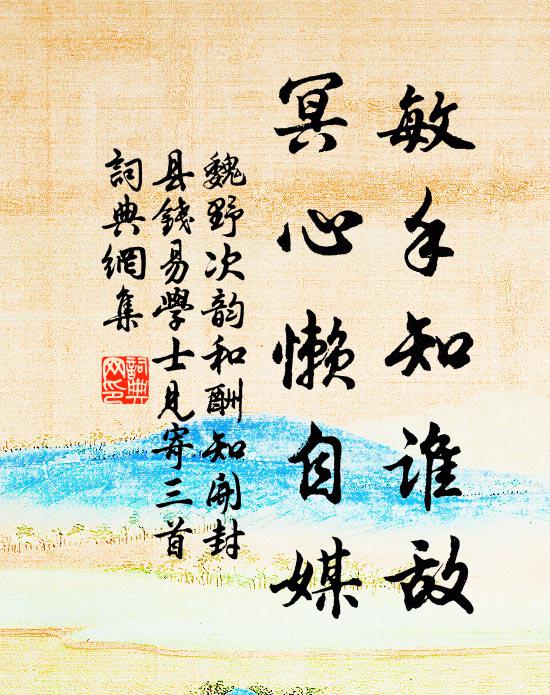 敏手知谁敌
冥心懒自媒
魏野次韵和酬知開封
县錢易學士見寄三首
詞典網集
詞典
网印